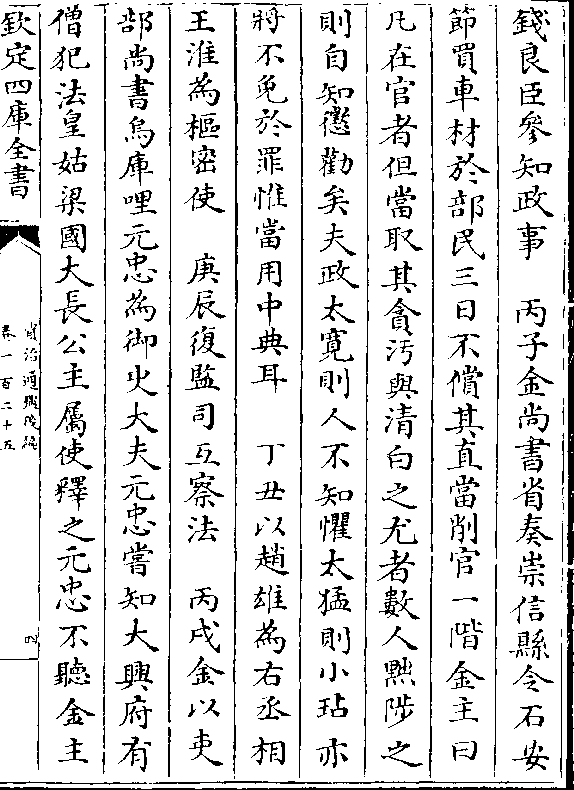 錢良臣參知政事　丙子金尚書省奏崇信縣令石安
節買車材於部民三日不償其直當削官一階金主曰
凡在官者但當取其貪汚與清白之尤者數人黜陟之
則自知懲勸矣夫政太寛則人不知懼太猛則小玷亦
將不免於罪惟當用中典耳　丁丑以趙雄為右丞相
王淮為樞密使　庚辰復監司互察法　丙戌金以吏
部尚書烏庫哩元忠為御史大夫元忠嘗知大興府有
僧犯法皇姑梁國大長公主屬使釋之元忠不聽金主
欽定四庫全書
資治通鑑後編
卷一百二十五
四